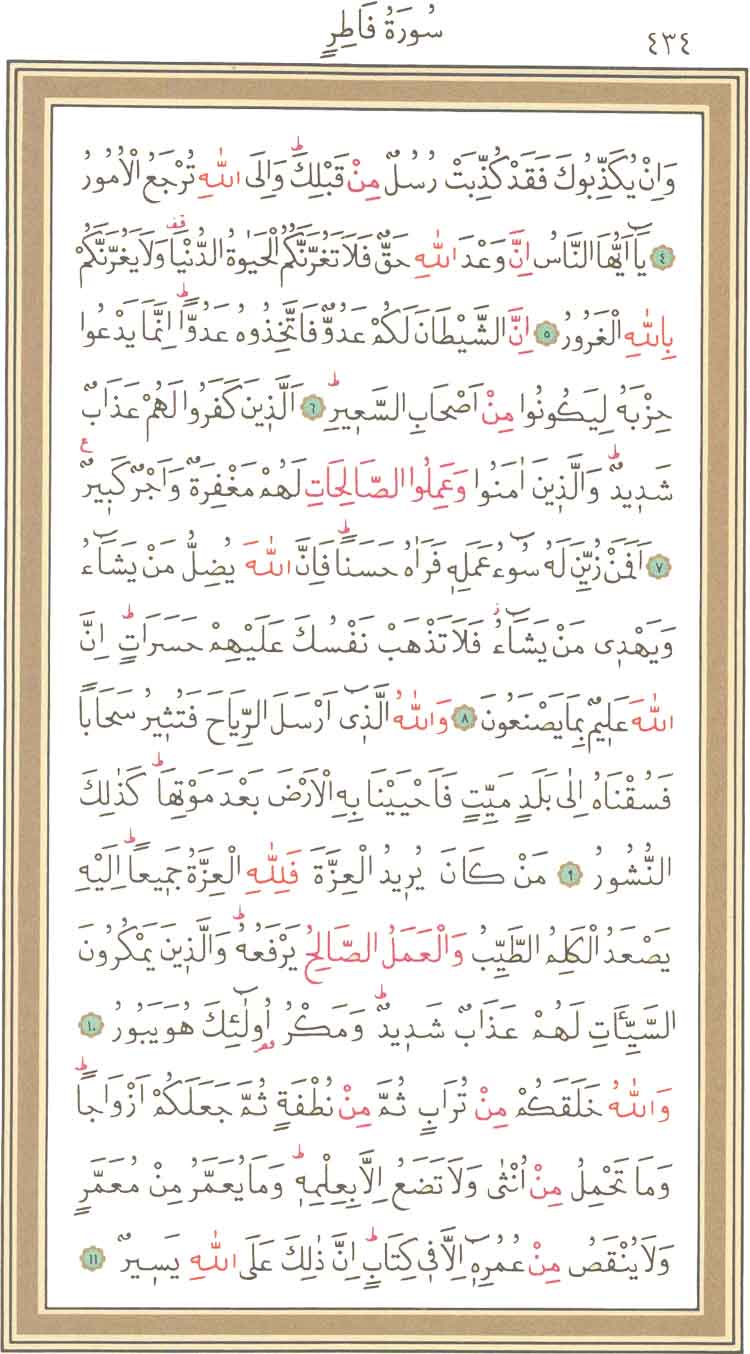 سُورَةُ فَاطِرٍ ٤٣٤
وَاِنْ يُكَذِّبُوكَ فَقَدْ كُذِّبَتْ رُسُلٌ مِنْ قَبْلِكَۜ وَاِلَى اللّٰهِ تُرْجَعُ الْاُمُورُ
﴿٤﴾ يَٓا اَيُّهَا النَّاسُ اِنَّ وَعْدَ اللّٰهِ حَقٌّ فَلَا تَغُرَّنَّكُمُ الْحَيٰوةُ الدُّنْيَا۠ وَلَا يَغُرَّنَّكُمْ
بِاللّٰهِ الْغَرُورُ ﴿٥﴾ اِنَّ الشَّيْطَانَ لَكُمْ عَدُوٌّ فَاتَّخِذُوهُ عَدُواًّۜ اِنَّمَا يَدْعُوا
حِزْبَهُ لِيَكُونُوا مِنْ اَصْحَابِ السَّعٖيرِۜ ﴿٦﴾ اَلَّذٖينَ كَفَرُوا لَهُمْ عَذَابٌ
شَدٖيدٌۜ وَالَّذٖينَ اٰمَنُوا وَعَمِلُوا الصَّالِحَاتِ لَهُمْ مَغْفِرَةٌ وَاَجْرٌ كَبٖيرٌ ع
﴿٧﴾ اَفَمَنْ زُيِّنَ لَهُ سُٓوءُ عَمَلِهٖ فَرَاٰهُ حَسَناًۜ فَاِنَّ اللّٰهَ يُضِلُّ مَنْ يَشَٓاءُ
وَيَهْدٖي مَنْ يَشَٓاءُؗ فَلَا تَذْهَبْ نَفْسُكَ عَلَيْهِمْ حَسَرَاتٍۜ اِنَّ
اللّٰهَ عَلٖيمٌ بِمَا يَصْنَعُونَ ﴿٨﴾ وَاللّٰهُ الَّذٖٓي اَرْسَلَ الرِّيَاحَ فَتُثٖيرُ سَحَاباً
فَسُقْنَاهُ اِلٰى بَلَدٍ مَيِّتٍ فَاَحْيَيْنَا بِهِ الْاَرْضَ بَعْدَ مَوْتِهَاۜ كَذٰلِكَ
النُّشُورُ ﴿٩﴾ مَنْ كَانَ يُرٖيدُ الْعِزَّةَ فَلِلّٰهِ الْعِزَّةُ جَمٖيعاًۜ اِلَيْهِ
يَصْعَدُ الْكَلِمُ الطَّيِّبُ وَالْعَمَلُ الصَّالِحُ يَرْفَعُهُۜ وَالَّذٖينَ يَمْكُرُونَ
السَّيِّـَٔاتِ لَهُمْ عَذَابٌ شَدٖيدٌۜ وَمَكْرُ اُو۬لٰٓئِكَ هُوَ يَبُورُ ﴿١٠﴾
وَاللّٰهُ خَلَقَكُمْ مِنْ تُرَابٍ ثُمَّ مِنْ نُطْفَةٍ ثُمَّ جَعَلَكُمْ اَزْوَاجاًۜ
وَمَا تَحْمِلُ مِنْ اُنْثٰى وَلَا تَضَعُ اِلَّا بِعِلْمِهٖۜ وَمَا يُعَمَّرُ مِنْ مُعَمَّرٍ
وَلَا يُنْقَصُ مِنْ عُمُرِهٖٓ اِلَّا فٖي كِتَابٍۜ اِنَّ ذٰلِكَ عَلَى اللّٰهِ يَسٖيرٌ ﴿١١﴾